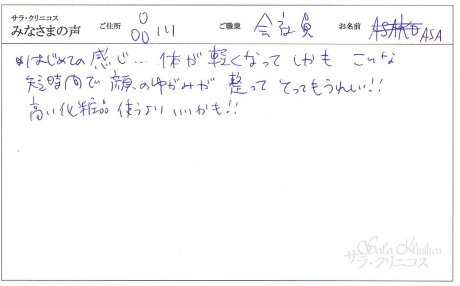 サラ・クリニコス
みなさまの声 ご住所 ご職業 会社員 お名前 ASA
はじめての感じ… 体が軽くなって しかも こんな
短時間で 顔のゆがみが 整って とってもうれしい!!
高い化粧品 使うより いいかも!!
Sala Klinikos
サラ・クリニコス